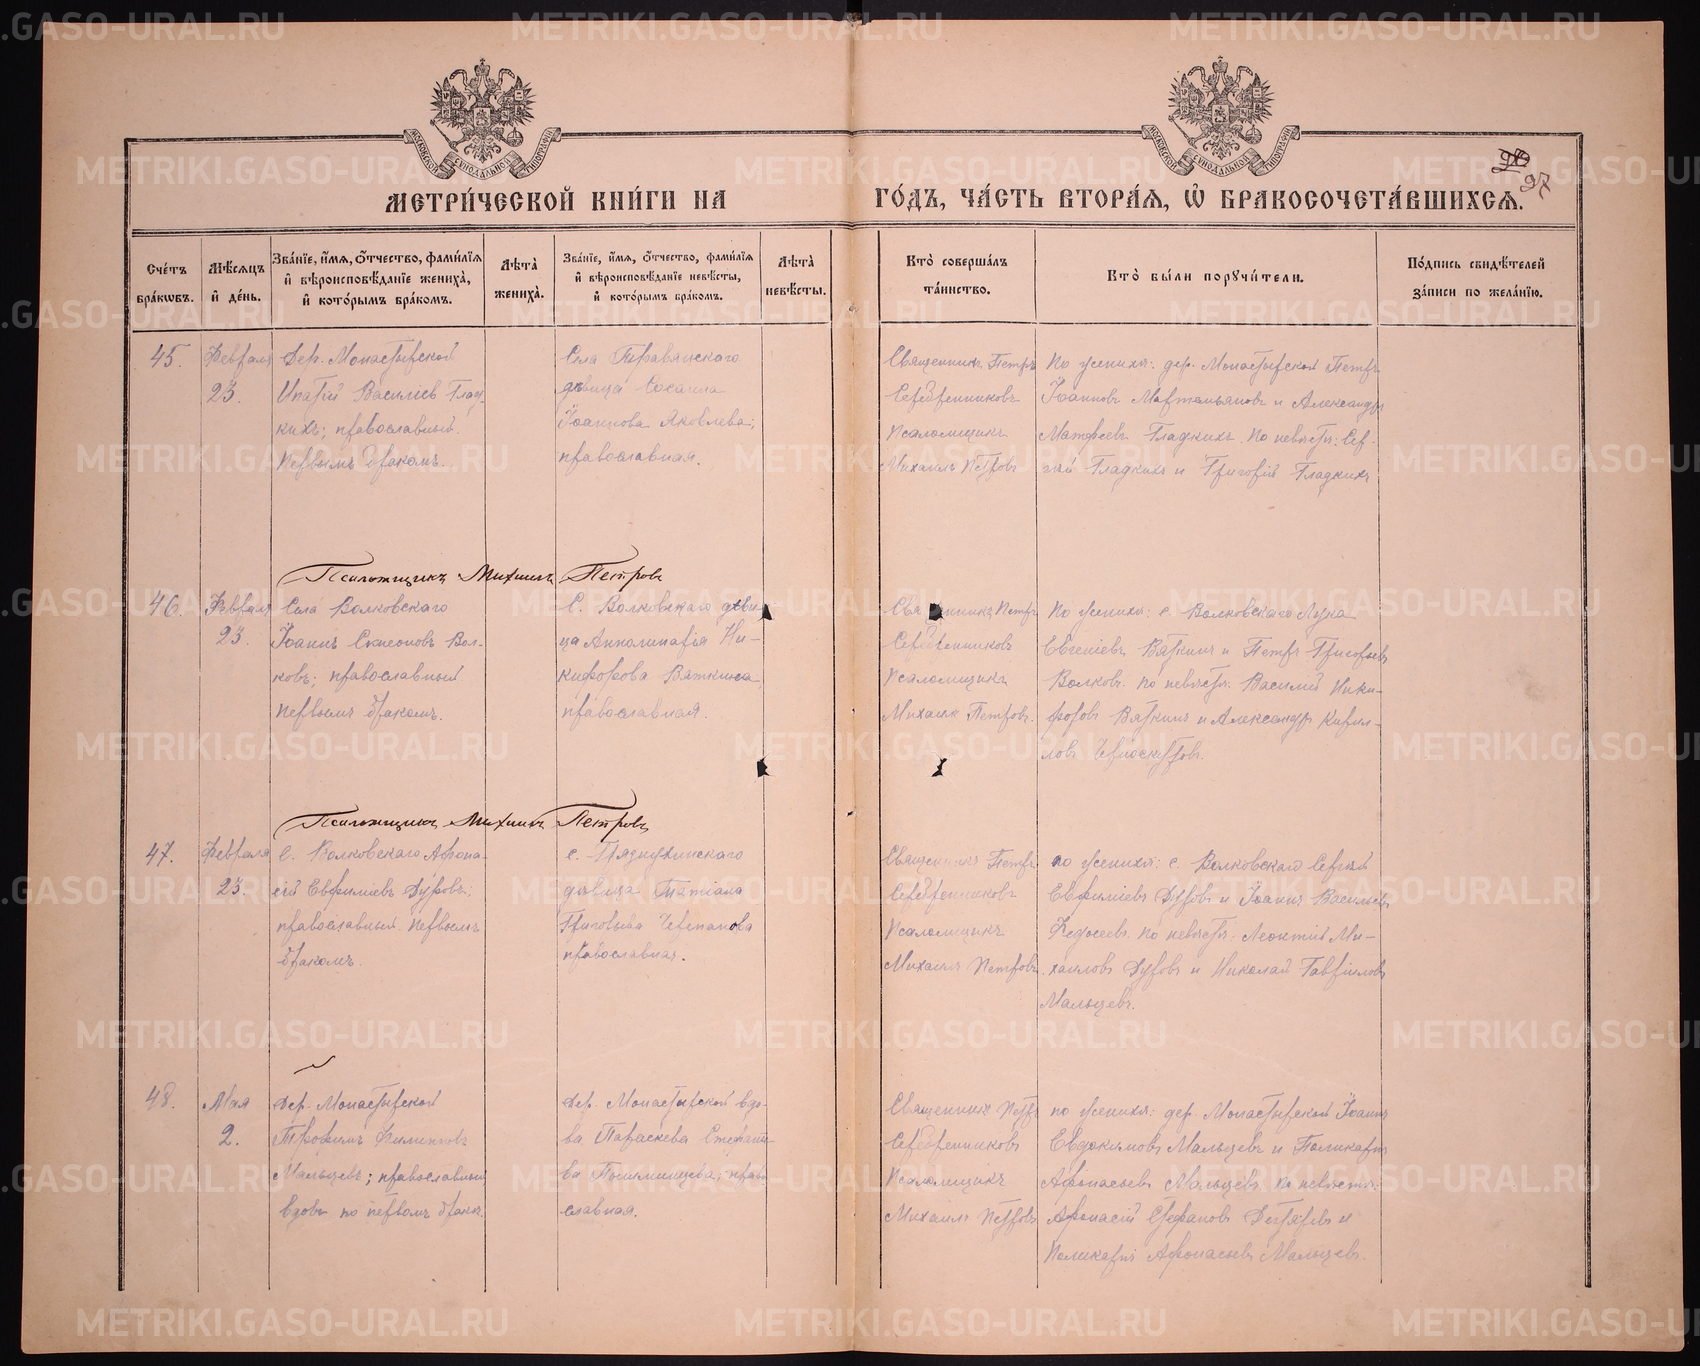 МЕТРИ́ЧЕСКОЙ КНИ́ГИ НА ГО́ДЪ, ЧА́СТЬ ВТОРА́Я, Ѡ҆ БРАКОСОЧЕТА́ВШИХСЯ.
97
Сче́тъ бра́кωвъ.
Мѣ́сяцъ и҆ де́нь.
Зва́нїе, и҆́мя, о҆́тчество, фами́лїя и҆ вѣроисповѣ́данїе жениха̀, и҆ кото́рымъ бра́комъ.
Лѣта̀ жениха̀.
Зва́нїе, и҆́мя, о҆́тчество, фами́лїя и҆ вѣроисповѣ́данїе невѣ́сты, и҆ кото́рымъ бра́комъ.
Лѣта̀ невѣ́сты.
Кто̀ соверша́лъ та́инство.
Кто̀ бы́ли порꙋчи́тели.
По́дпись свидѣ́телей за́писи по жела́нїю.
45.
Февраля
23.
Дер. Монастырской
Ипатій Василіев Глад-
кихъ; православный.
Первымъ бракомъ.
Села Травянскаго
дѣвица Сосанна
Іоаннова Яковлева;
православная.
Священникъ Петръ
Серебренниковъ
Псаломщикъ
Михаилъ Петровъ
По женихѣ: дер. Монастырской Петръ
Іоанновъ Мартемьяновъ и Александръ
Матфеевъ Гладкихъ. По невѣстѣ: Сер-
гѣй Гладкихъ и Григорій Гладкихъ
Псаломщикъ Михаилъ Петровъ
46.
Февраля
23.
Села Волковскаго
Іоаннъ Симеоновъ Вол-
ковъ; православный.
Первымъ бракомъ.
С. Волковскаго дѣви-
ца Апполинарія Ни-
кифорова Вяткина,
православная.
Священникъ Петръ
Серебренниковъ
Псаломщикъ
Михаилъ Петровъ.
По женихѣ: с. Волковскаго Лука
Евгеніевъ Вяткинъ и Петръ Григорьевъ
Волковъ. По невѣстѣ: Василій Ники-
форовъ Вяткинъ и Александръ Кирил-
ловъ Черноскутовъ.
Псаломщикъ Михаилъ Петровъ
47.
Февраля
23.
С. Волковскаго Афона-
сій Евфиміевъ Дуровъ;
православный. Первымъ
бракомъ.
с. Грязнухинскаго
дѣвица Татіана
Григорьева Черепанова
православная.
Священникъ Петръ
Серебренниковъ
Псаломщикъ
Михаилъ Петровъ
по женихѣ: с. Волковскаго Сергѣй
Евфиміевъ Дуровъ и Іоаннъ Васильевъ
Федосеевъ. По невѣстѣ: Леонтій Ми-
хаиловъ Дуровъ и Николай Гавріиловъ
Мальцевъ.
48.
Мая
2.
Дер. Монастырской
Трофимъ Филипповъ
Мальцевъ; православный
вдовъ по первомъ бракѣ.
Дер. Монастырской вдо-
ва Параскева Стефано-
ва Пышминцева; право-
славная.
Священникъ Петръ
Серебренниковъ
Псаломщикъ
Михаилъ Петровъ
по женихѣ: дер. Монастырской Іоаннъ
Евдокимовъ Мальцевъ и Поликарпъ
Афонасьевъ Мальцевъ. По невѣстѣ:
Афонасій Стефановъ Дегтяревъ и
Поликарпъ Афонасьевъ Мальцевъ.
METRIKI.GASO-URAL.RU